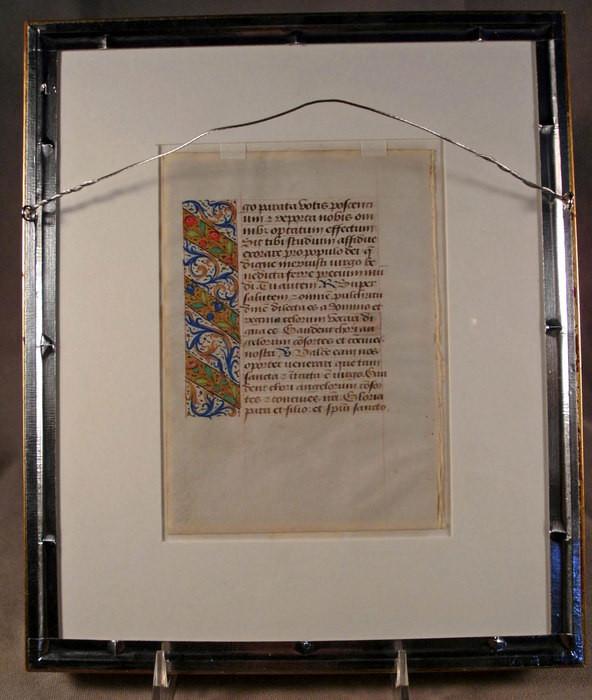 go parata votis poscenti
um ⁊ reporta nobis om
nibꝰ optatum effectum
Sit tibi studium assidue
exorare pro populo dei q̄
digne meruisti virgo be
nedicta ferre precium mū
di. Tu autem R Super
salutem ⁊ omnē pulchritu
dinē dilecta es a domino et
regina celorum vocari di
gna es Gaudent chori an
gelorum cōsortes et cōciues
nostri V Valde eam nos
oportet venerari que tam
sancta ⁊ ītacta ē virgo. Gau
dent chori angelorum cōsor
tes ⁊ conciues nri. Gloria
patri et filio et spūi sancto